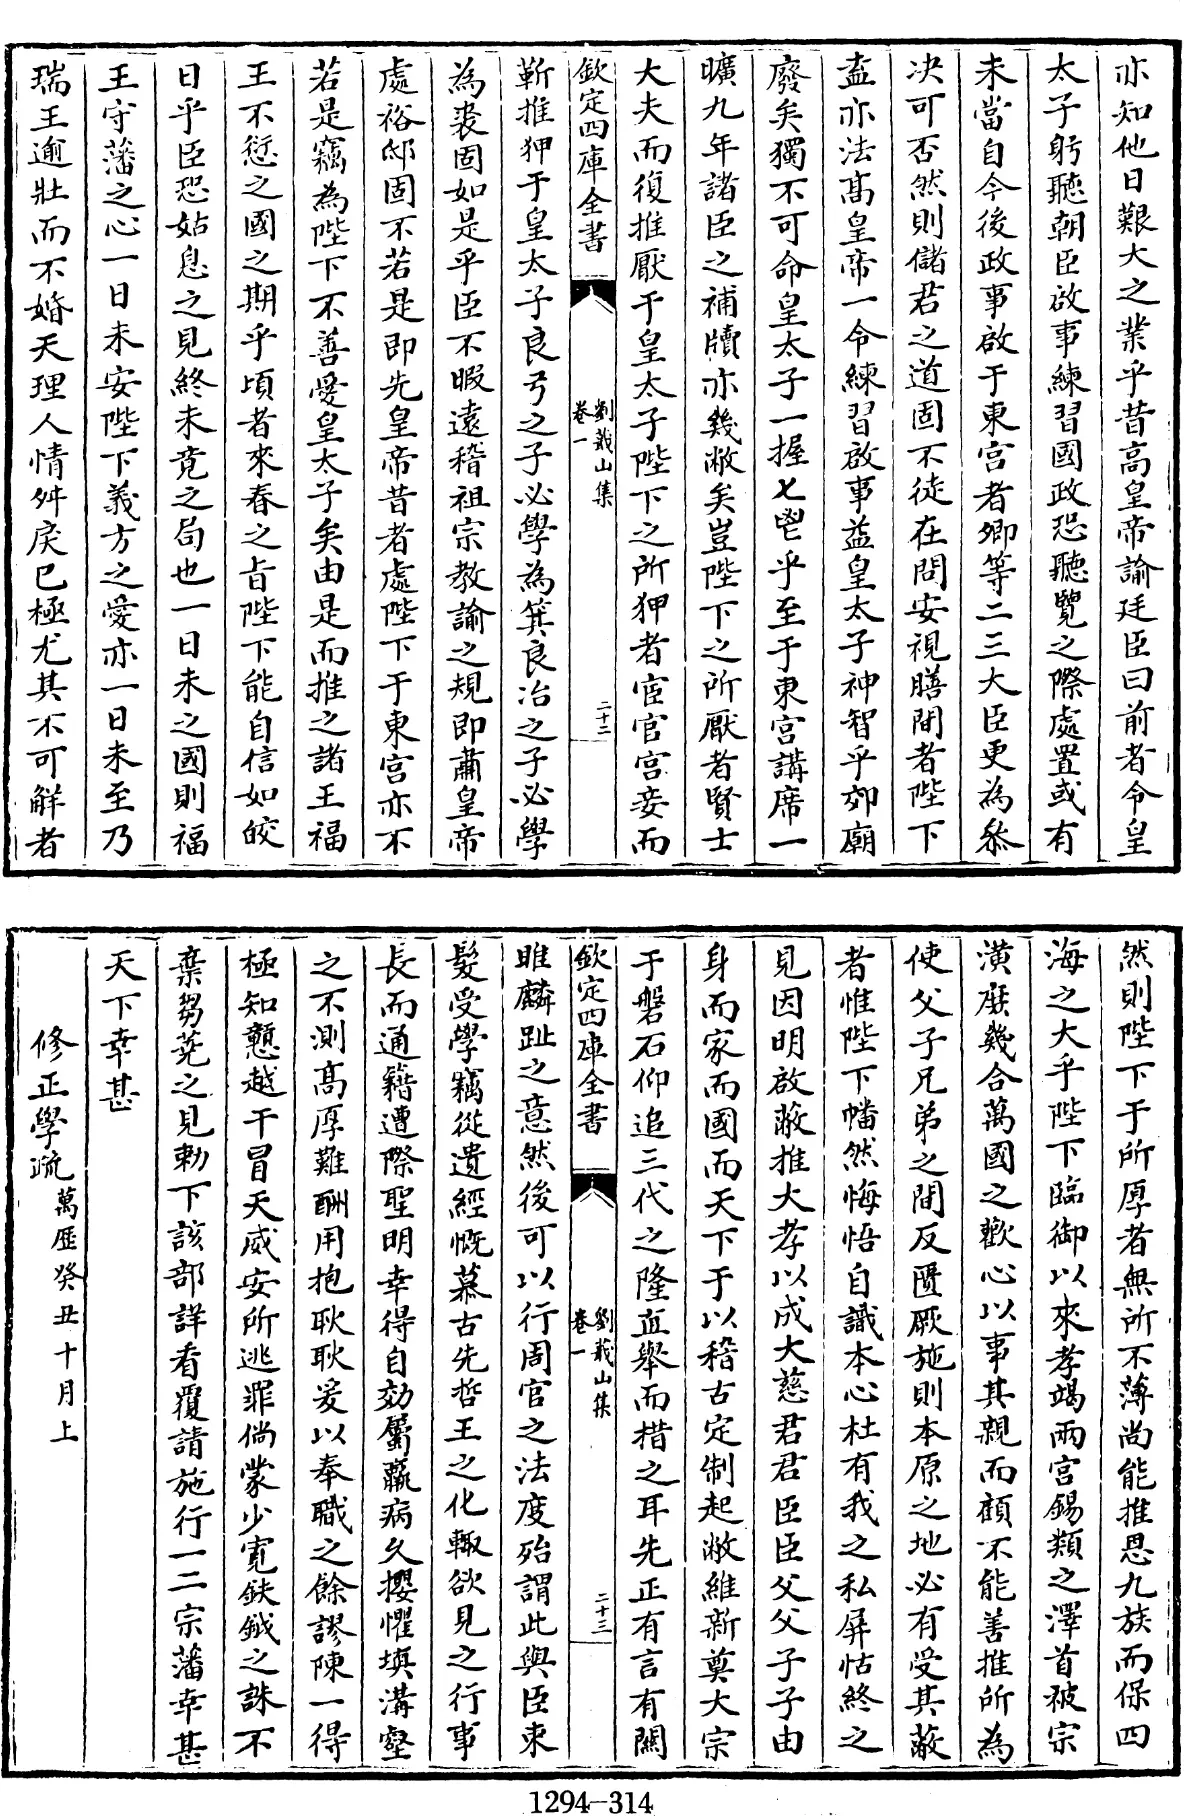 亦知他日艱大之業乎昔高皇帝諭廷臣曰前者令皇
太子躬聽朝臣啟事練習國政恐聽覽之際處置或有
未當自今後政事啟于東宫者卿等二三大臣更為叅
决可否然則儲君之道固不徒在問安視膳間者陛下
盍亦法髙皇帝一令練習啟事益皇太子神智乎郊廟
廢矣獨不可命皇太子一握匕鬯乎至于東宫講席一
曠九年諸臣之補牘亦幾敝矣豈陛下之所厭者賢士
大夫而復推厭于皇太子陛下之所狎者宦官宫妾而
欽定四庫全書
劉蕺山集
卷一
二十二
靳推狎于皇太子良弓之子必學為箕良冶之子必學
為裘固如是乎臣不暇遠稽祖宗教諭之規即肅皇帝
處裕邸固不若是即先皇帝昔者處陛下于東宫亦不
若是竊為陛下不善愛皇太子矣由是而推之諸王福
王不愆之國之期乎頃者來春之㫖陛下能自信如皎
日乎臣恐姑息之見終未竟之局也一日未之國則福
王守藩之心一日未安陛下義方之愛亦一日未至乃
瑞王逾壯而不婚天理人情舛戾已極尤其不可解者
然則陛下于所厚者無所不薄尚能推恩九族而保四
海之大乎陛下臨御以來孝竭兩宫錫類之澤首被宗
潢庶幾合萬國之歡心以事其親而顧不能善推所為
使父子兄弟之間反匱厥施則本原之地必有受其蔽
者惟陛下幡然悔悟自識本心杜有我之私屏怙終之
見因明啟蔽推大孝以成大慈君君臣臣父父子子由
身而家而國而天下于以稽古定制起敝維新奠大宗
于磐石仰追三代之隆直舉而措之耳先正有言有關
欽定四庫全書
劉蕺山集
卷一
二十三
雎麟趾之意然後可以行周官之法度殆謂此與臣束
髮受學竊從遺經慨慕古先哲王之化輙欲見之行事
長而通籍遭際聖明幸得自効屬羸病久攖懼填溝壑
之不測髙厚難酬用抱耿耿爰以奉職之餘謬陳一得
極知戇越干冒天威安所逃罪倘蒙少寛鈇鉞之誅不
棄芻蕘之見勅下該部詳看覆請施行一二宗藩幸甚
天下幸甚
修正學疏萬歴癸丑十月上
1294-314